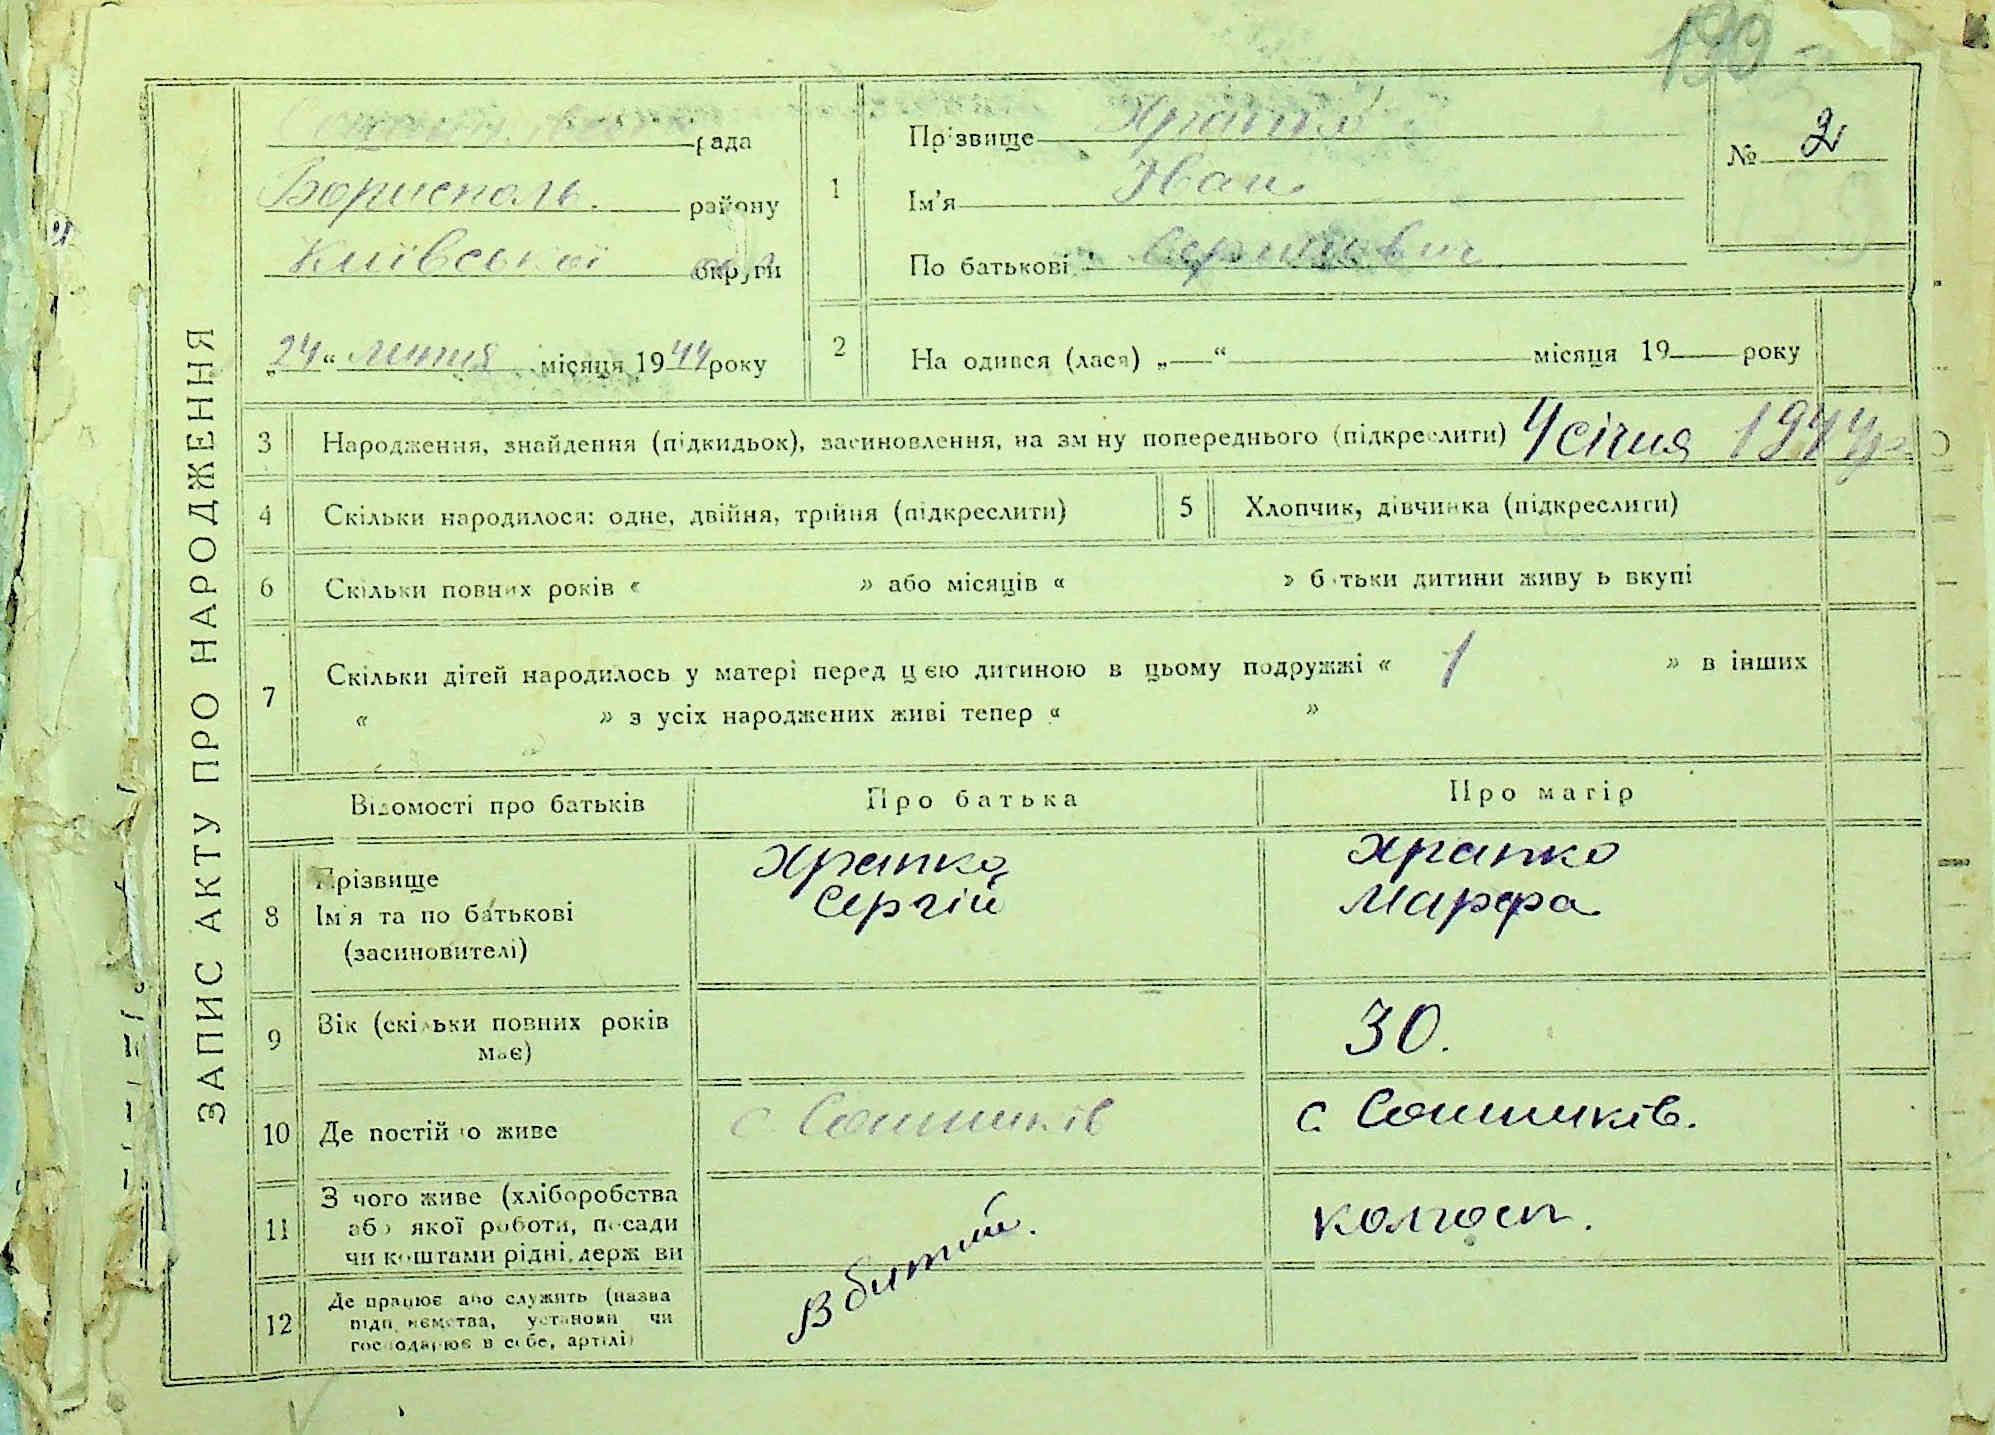 190
ЗАПИС АКТУ ПРО НАРОДЖЕННЯ
рада
Бориспольс. району
Київської округи
„24“ лютня місяця 1944 року
1
Прізвище Храпко
Ім'я Іван
По батькові Сергійович
№ 2
2
На одився (лася) „—“ місяця 19 року
3
Народження, знайдення (підкидьок), засиновлення, на зм ну попереднього (підкреслити) 4 січня 1944 р
4
Скільки народилося: одне, двійня, трійня (підкреслити)
5
Хлопчик, дівчинка (підкреслити)
6
Скільки повних років « » або місяців « » батьки дитини живу ь вкупі
7
Скільки дітей народилось у матері перед цією дитиною в цьому подружжі « 1 » в інших
« » з усіх народжених живі тепер « »
Відомості про батьків
Про батька
Про матір
8
Прізвище
Ім'я та по батькові
(засиновителі)
Храпко
Сергій
Храпко
Марфа
9
Вік (скільки повних років
має)
30.
10
Де постійно живе
с Сошників
с Сошників.
11
З чого живе (хліборобства
або якої роботи, посади
чи коштами рідні, держ ви
Вбитий.
колгосп.
12
Де працює або служить (назва
підп иємства, установи чи
господарює в себе, артілі)